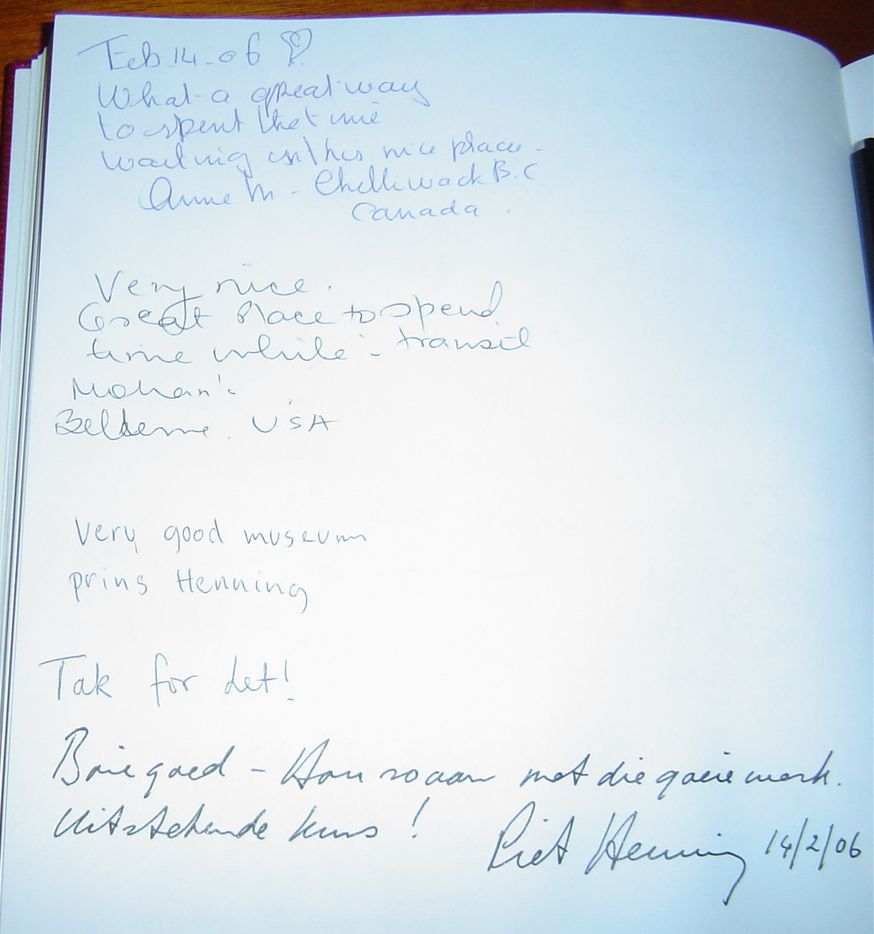 Feb 14-06
What a great way
to spent the time
waiting in this nice place.
Anne M - Chilliwack B.C
Canada.
Very nice.
Great Place to spend
time while - transit
Mohan
USA
Very good museum
prins Henning
Tak for det!
Baie goed - Hou so aan met die goeie werk.
Uitstekende kuns!
Piet Henning 14/2/06